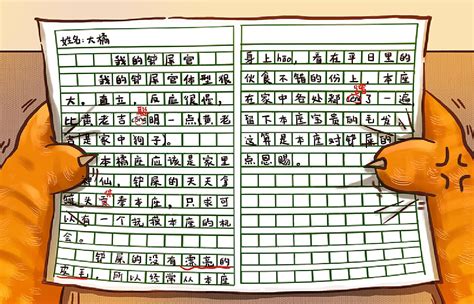 姓名:大橘
我的铲屎官
我的铲屎官体型很
大,直立,反应很慢,
比黄老吉cōng明一点(黄老
是家中狗子)。
本橘座应该是家里
神仙,铲屎的天天拿
罐头贡着本座,只求可
以有一个抚摸本座的机
会。
铲屎的没有漂亮的
皮毛,所以经常从本座
身上hāo,看在平日里的
伙食不错的份上,本座
在家中各处都cèng了一遍
留下本座宝贵的毛发,
这算是本座对铲屎的一
点恩赐。